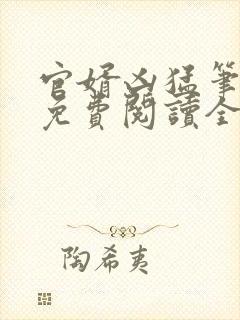 官婿凶猛筆
免費閱讀全
陶希夷